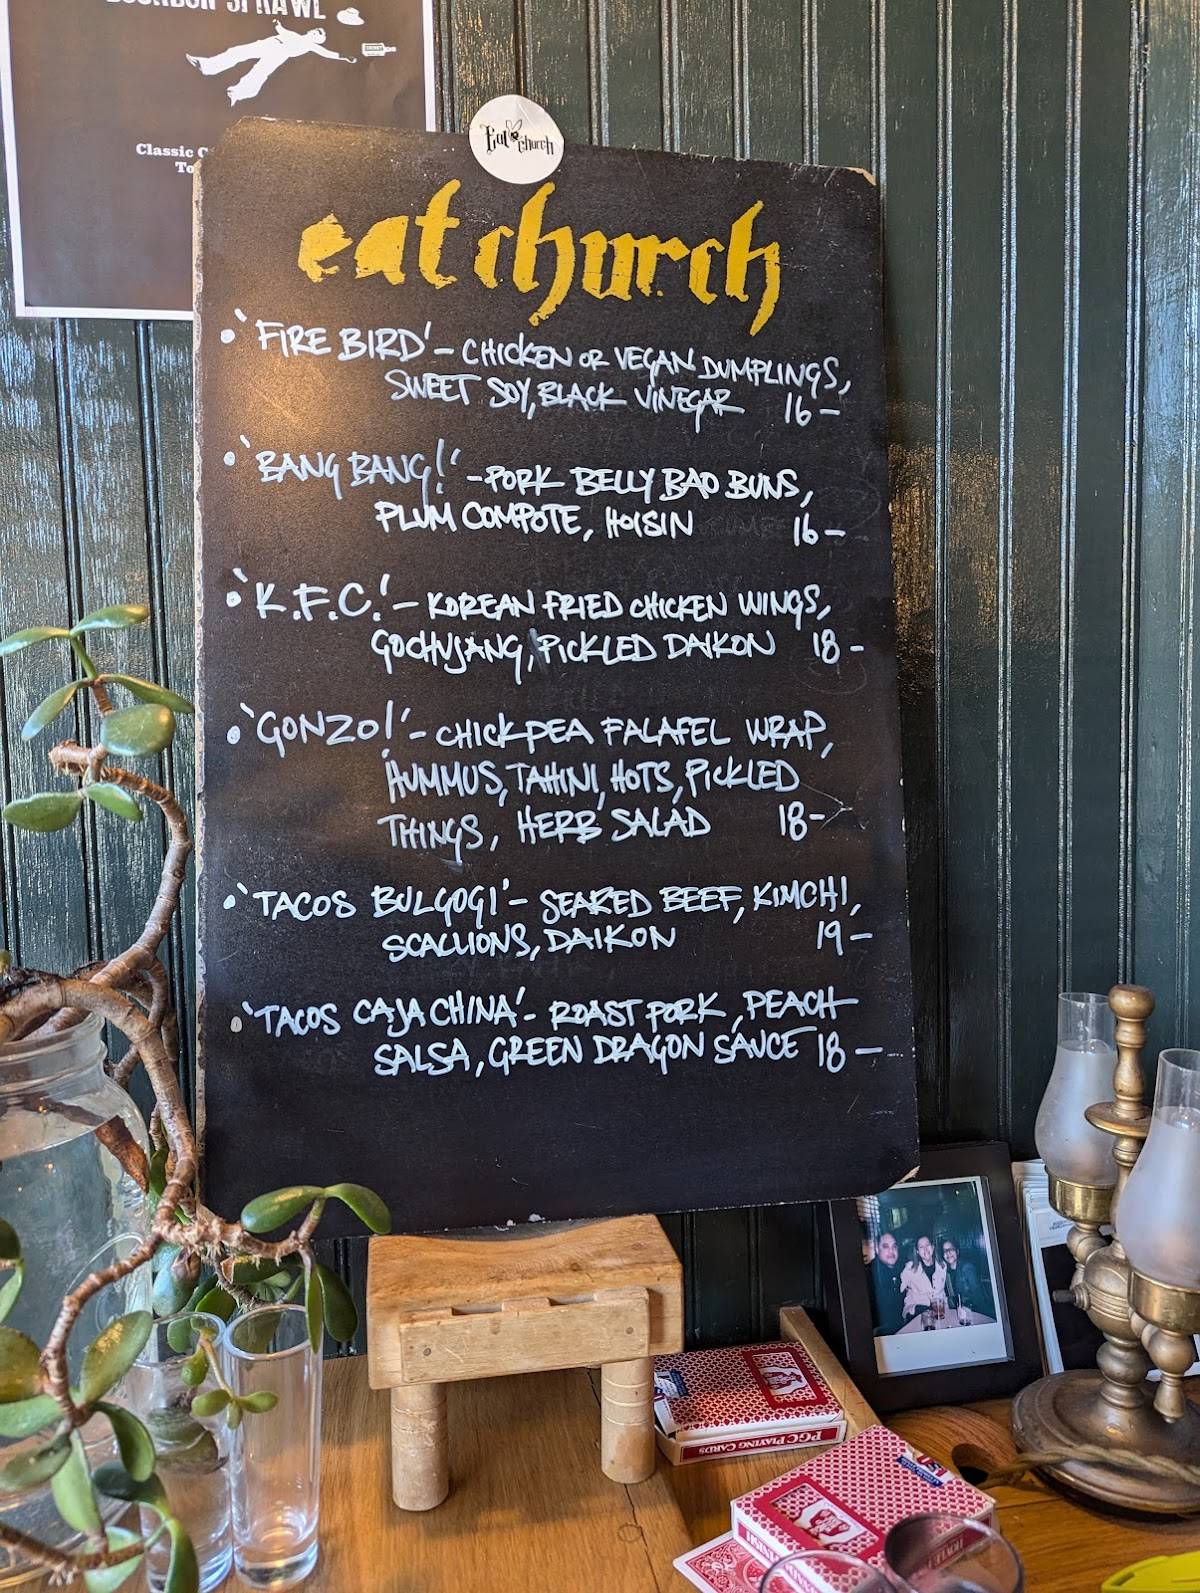 Eat Church
eat church
• 'FIRE BIRD' - CHICKEN OR VEGAN DUMPLINGS,
SWEET SOY, BLACK VINEGAR 16 -
• 'BANG BANG!' - PORK BELLY BAO BUNS,
PLUM COMPOTE, HOISIN 16 -
• 'K.F.C.' - KOREAN FRIED CHICKEN WINGS,
GOCHUJANG, PICKLED DAIKON 18 -
• 'GONZO!' - CHICKPEA FALAFEL WRAP,
HUMMUS, TAHINI, HOTS, PICKLED
THINGS, HERB SALAD 18 -
• 'TACOS BULGOGI' - SEARED BEEF, KIMCHI,
SCALLIONS, DAIKON 19 -
• 'TACOS CAJA CHINA' - ROAST PORK, PEACH
SALSA, GREEN DRAGON SAUCE 18 -
Classic
PGC PLAYING CARDS